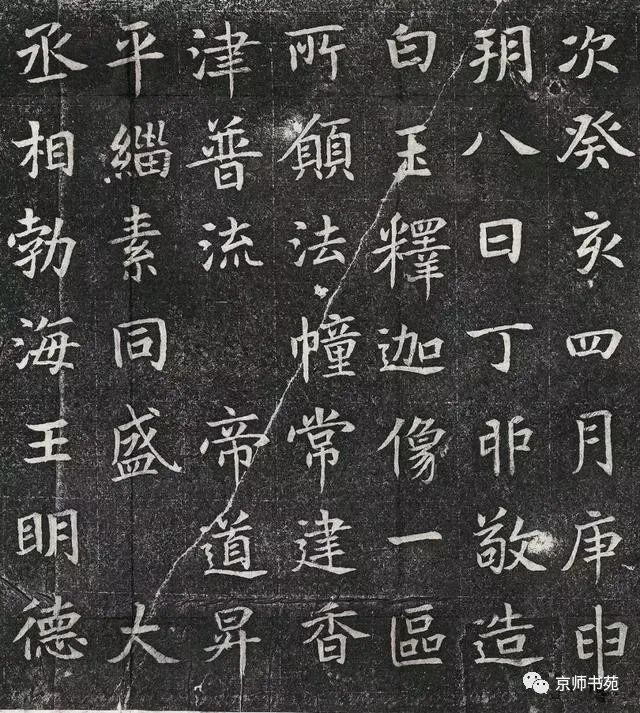 次癸亥四月庚申
玥八日丁卯敬造
白玉釋迦像一區
所願法幢常建香
津普流帝道昇
平緇素同盛大
丞相勃海王明德
京师书苑